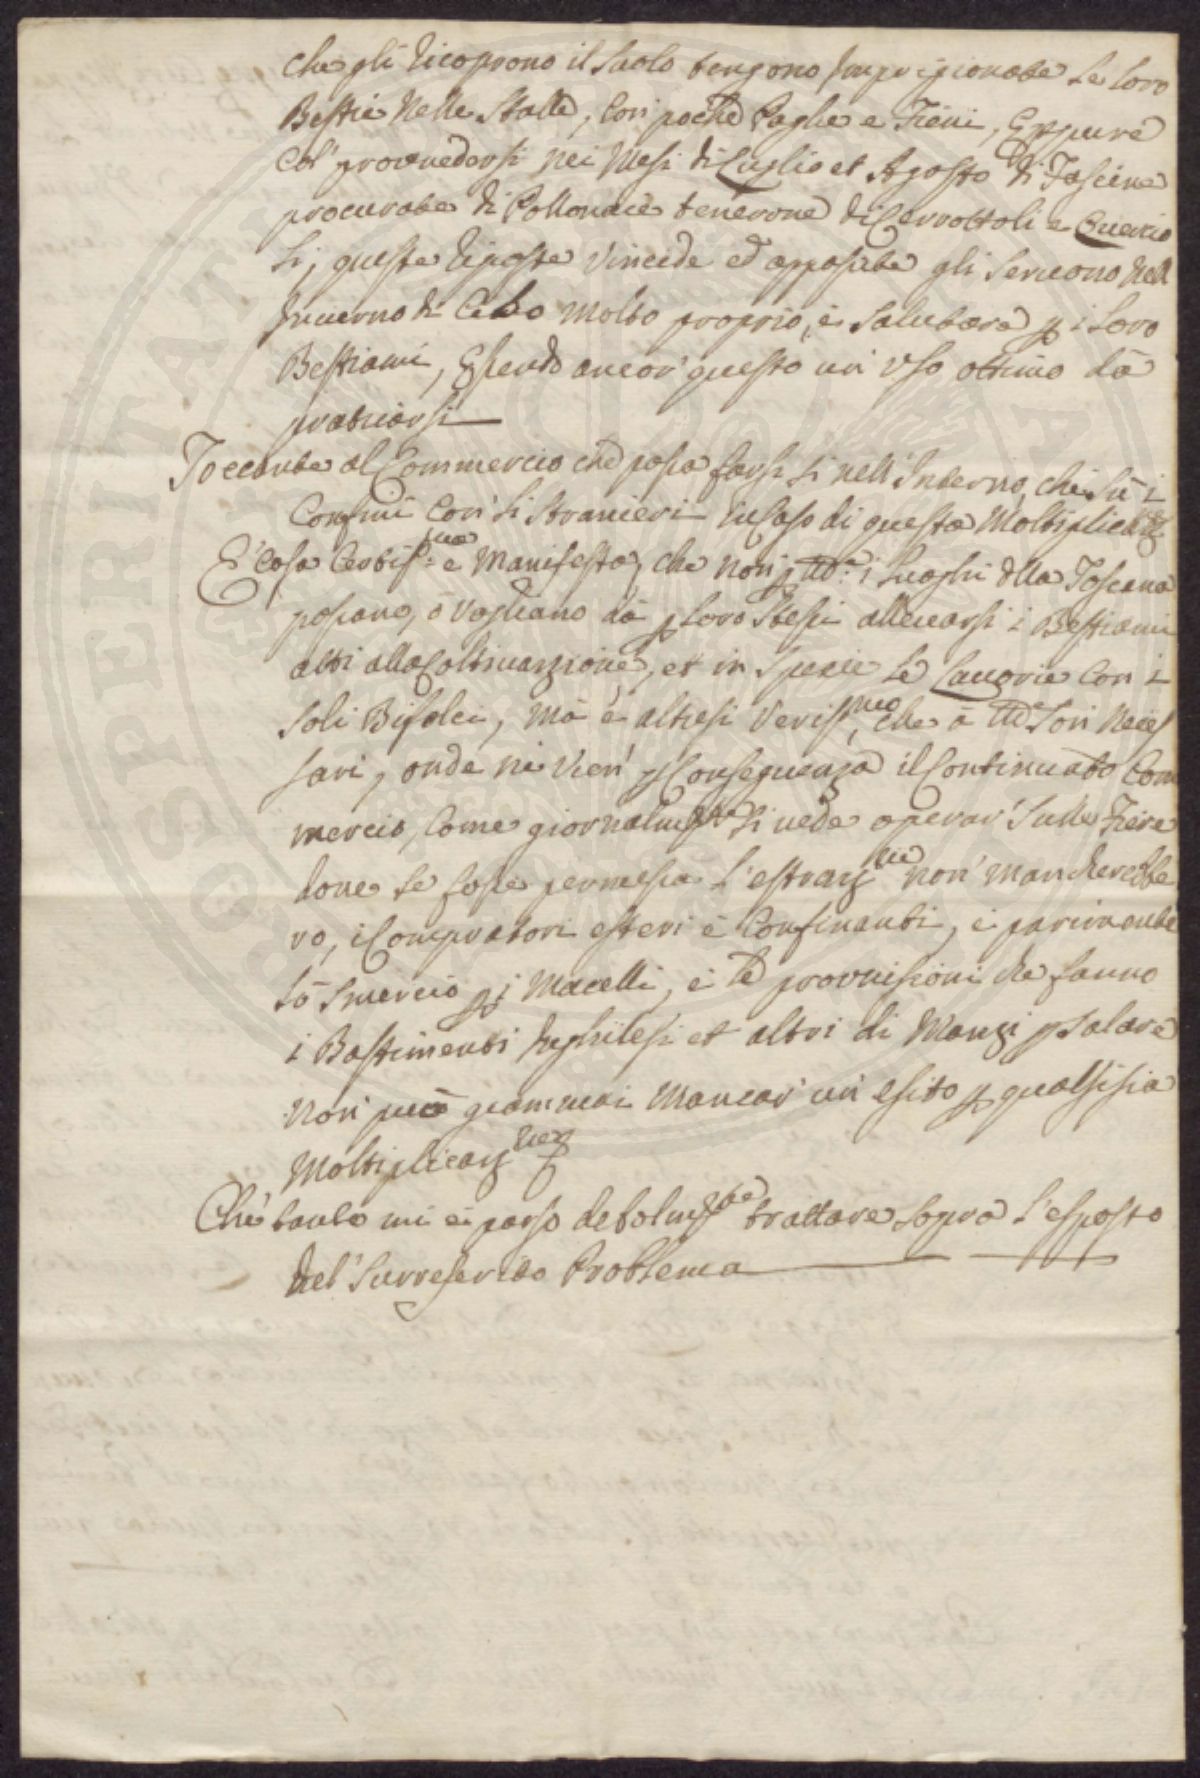 che gli ricoprono il suolo tengono Imprigionate le loro
Bestie nelle stalle, con poche Paglie e Fieni, Eppure
col' provvedersi nei Mesi di Luglio et Agosto di Fascine
procurate di Pollonacie tenerone di Cerrottoli e Quercio
li, queste riposte vincide ed appassite gli servono nell
Inverno di Cibo molto proprio, e salutare p i loro
Bestiami, Essendo ancor' questo un' uso ottimo dà
praticarsi
Toccante al Commercio che possa farsi si nell'Interno, che sù i
Confini con' li stranieri in caso di questa Moltiplicaz.ne
E' Cosa Certiss.ma e Manifesta, che non p tt.i i luoghi dlla Toscana
possano, ò vogliano dà p loro stessi allevarsi i Bestiami
atti alla Coltivazzione, et in specie le Lavorie con i
soli Bifolci, mà è altresi veriss.mo che à tt.i son neces
sari, onde ne vien' p Conseguenza il Continuato Com
mercio, come giornalm.te si vede operar' sulle Fiere
dove se fosse permessa l'estraz.ne non' mancherebbe
ro, i Compratori esteri e Confinanti, e parimente
lò smercio p i Macelli, e le provvisioni che fanno
i Bastimenti Inghilesi et altri di Manzi p salare
non' può giammai mancar' un' esito p qualsisia
Moltiplicaz.ne
Che' tanto mi è parso debolm.te trattare sopra l'esposto
del' surreferito Problema
PROSPERITATI